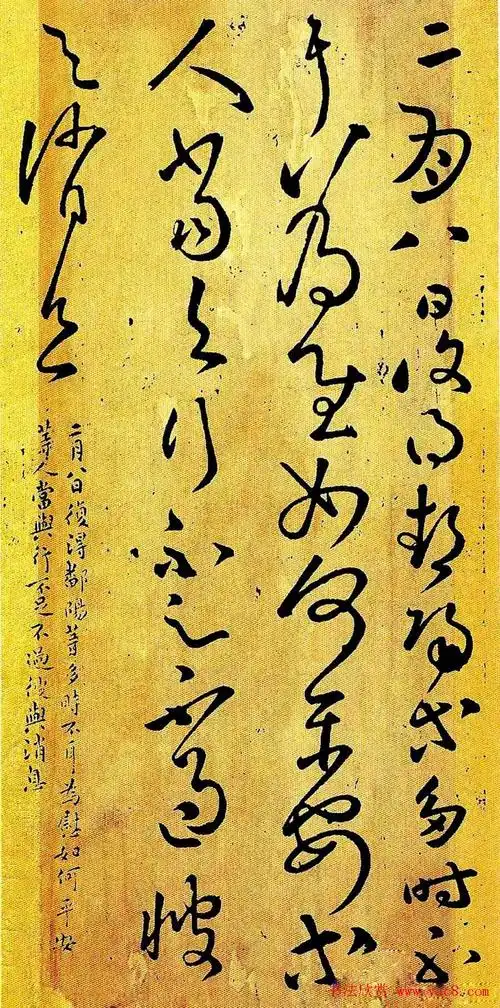 二月八日復得鄱陽等多時不
耳為慰如何平安等
人當與行不足不過
與消息
二月八日復得鄱陽等多時不耳為慰如何平安
等人當與行不足不過後與消息
书法欣赏 www.yac8.com